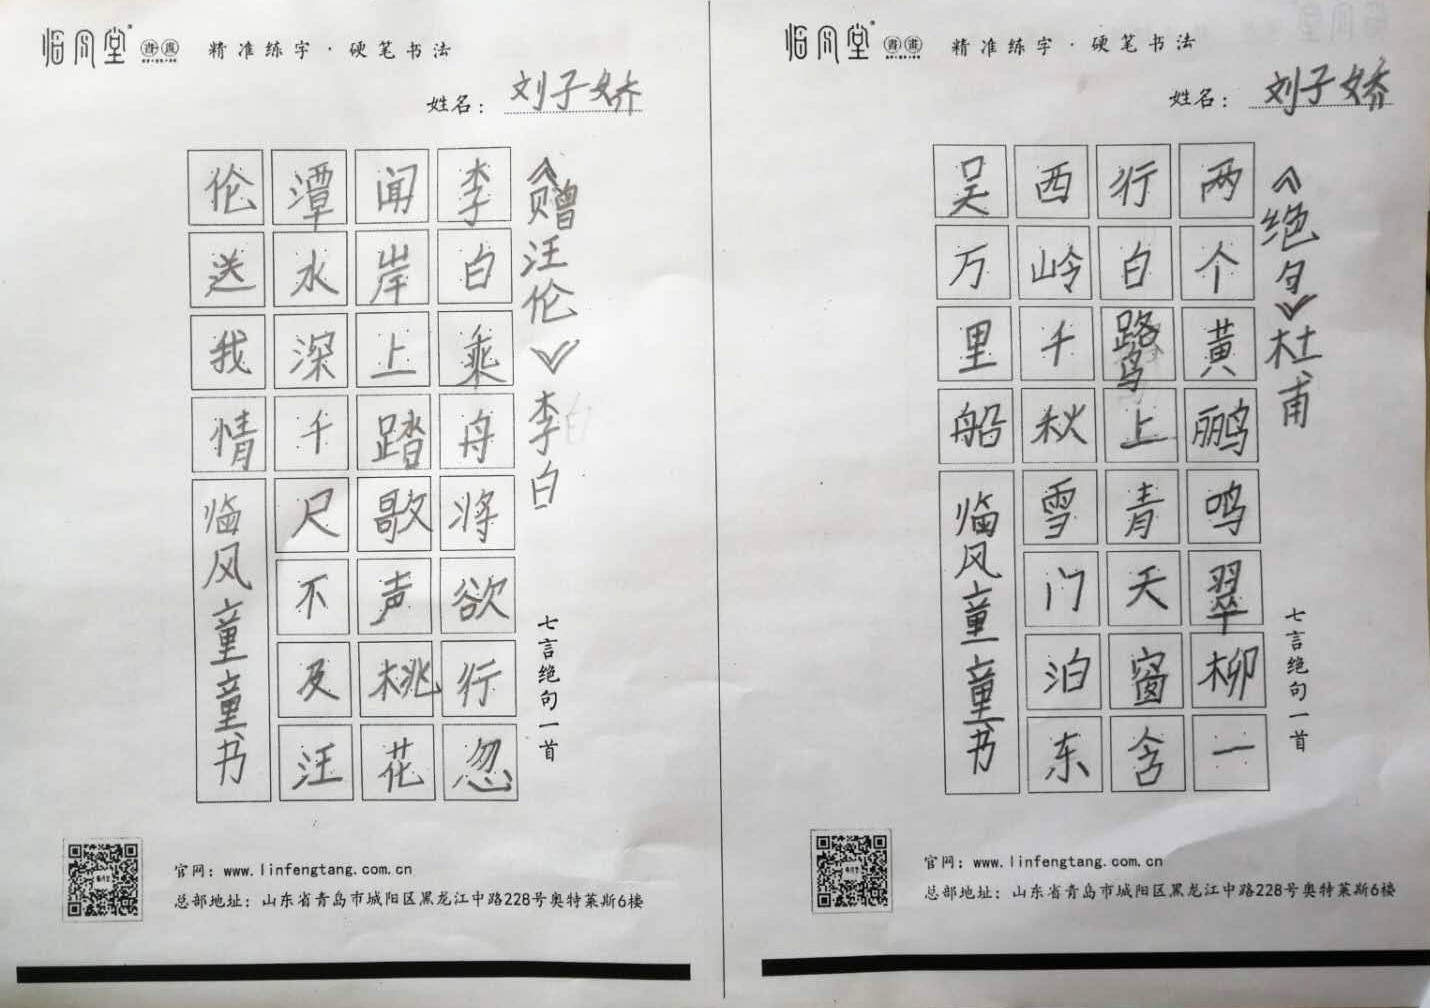 临风堂 书画 精准练字·硬笔书法
姓名：刘子娇
《赠汪伦》李白
七言绝句一首
李白乘舟将欲行忽
闻岸上踏歌声桃花
潭水深千尺不及汪
伦送我情
临风童童书
官网：www.linfengtang.com.cn
总部地址：山东省青岛市城阳区黑龙江中路228号奥特莱斯6楼
临风堂 书画 精准练字·硬笔书法
姓名：刘子娇
《绝句》杜甫
七言绝句一首
两个黄鹂鸣翠柳一
行白鹭上青天窗含
西岭千秋雪门泊东
吴万里船
临风童童书
官网：www.linfengtang.com.cn
总部地址：山东省青岛市城阳区黑龙江中路228号奥特莱斯6楼